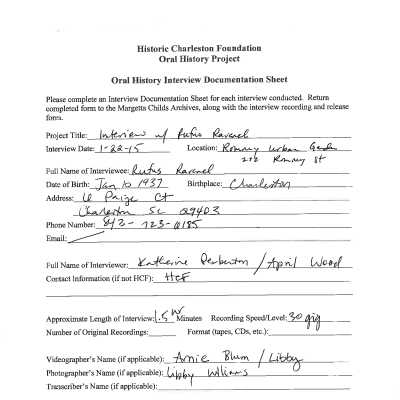 Historic Charleston Foundation
Oral History Project
Oral History Interview Documentation Sheet
Please complete an Interview Documentation Sheet for each interview conducted. Return
completed form to the Margetts Childs Archives, along with the interview recording and release
form.
Project Title: Interview w/ Rufus Ravenel
Interview Date: 1-22-15 Location: Romney Urban Garden
212 Romney St
Full Name of Interviewee: Rufus Ravenel
Date of Birth: Jan 10 1937 Birthplace: Charleston
Address: 6 Paige Ct
Charleston SC 29403
Phone Number: 843-723-0185
Email:
Full Name of Interviewer: Katherine Pemberton / April Wood
Contact Information (if not HCF): HCF
Approximate Length of Interview: 1.5 hr Minutes Recording Speed/Level: 30 gig
Number of Original Recordings: Format (tapes, CDs, etc.):
Videographer's Name (if applicable): Arnie Blum / Libby
Photographer's Name (if applicable): Libby Williams
Transcriber's Name (if applicable):